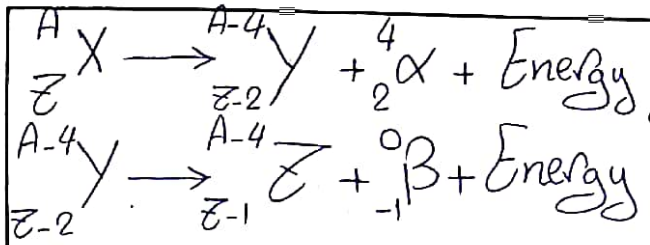 ^A_Z X → ^{A-4}_{Z-2} Y + ^4_2 α + Energy
^{A-4}_{Z-2} Y → ^{A-4}_{Z-1} Z + ^0_{-1} β + Energy